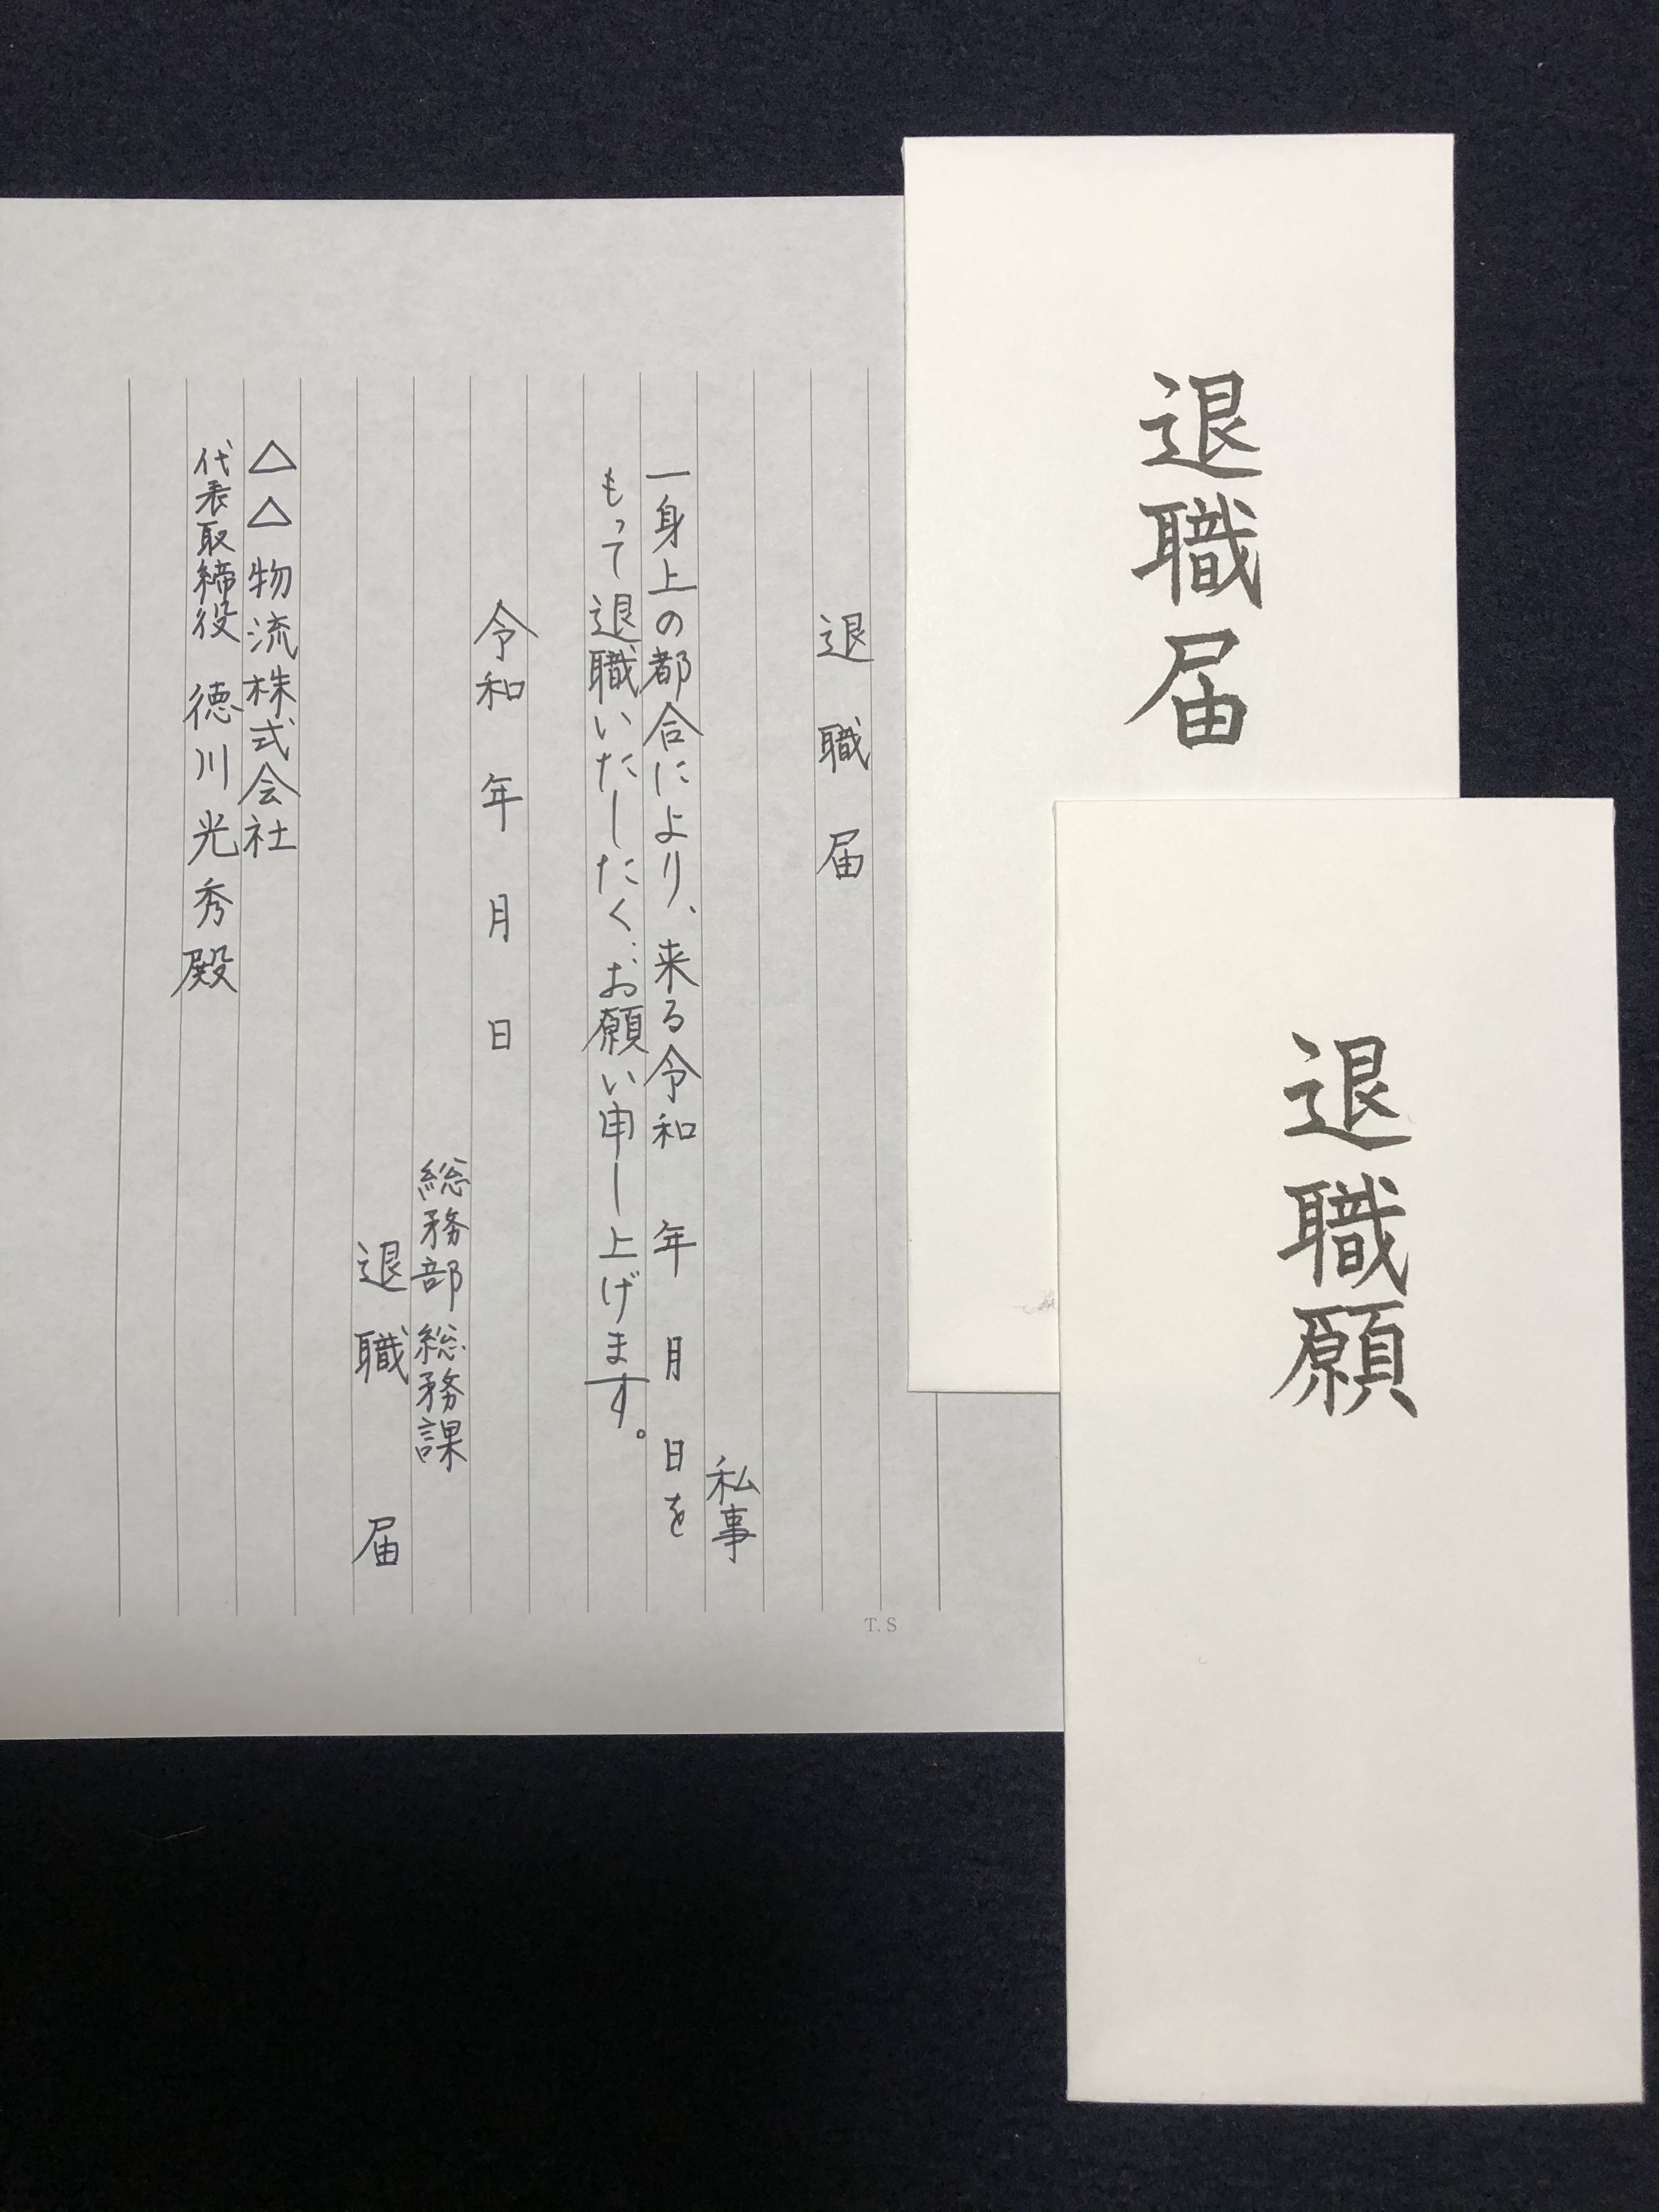 退職届
退職願
退職届
私事
一身上の都合により、来る令和 年 月 日を
もって退職いたしたく、お願い申し上げます。
令和 年 月 日
総務部 総務課
退職 届
△△物流株式会社
代表取締役 徳川光秀殿
T. S